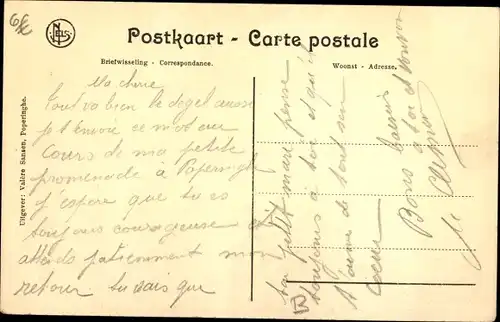 6E
NELS
Postkaart - Carte postale
Briefwisseling - Correspondance.
Woonst - Adresse.
Uitgever: Valère Sansen, Poperinghe.
Ma chérie
Tout va bien le degel aussi
je t'envoie ce mot au
cours de ma petite
promenade à Poperinghe
j'espère que tu es
toujours courageuse et
attends patiemment mon
retour. tu sais que
ton petit mari pense
toujours à toi et qu'il
t'aime de tout son
coeur
Bons baisers
à toi et
B